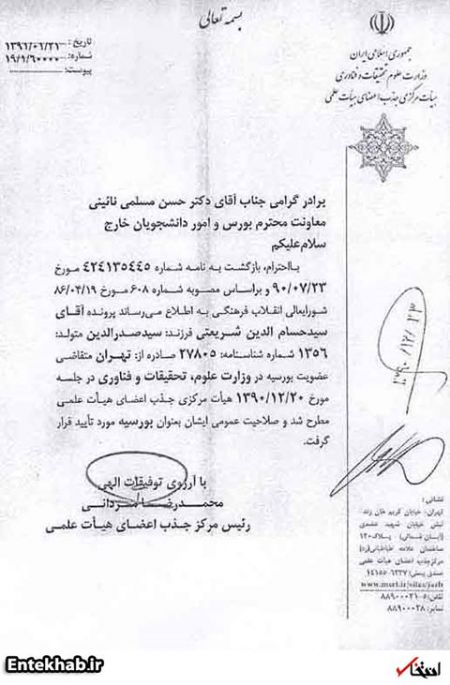 بسمه تعالی
جمهوری اسلامی ایران
وزارت علوم تحقیقات و فناوری
هیأت مرکزی جذب اعضای هیأت علمی
تاریخ:
شماره: ۱۹/۱/۶۰۰۰۰
پیوست:
برادر گرامی جناب آقای دکتر حسن مسلمی نائینی
معاونت محترم بورس و امور دانشجویان خارج
سلام‌علیکم
بااحترام، بازگشت به نامه شماره ۴۲۴۱۳۵۴۴۵ مورخ
۹۰/۰۷/۲۳ و براساس مصوبه شماره ۶۰۸ مورخ ۸۶/۰۴/۱۹
شورایعالی انقلاب فرهنگی به اطلاع می‌رساند پرونده آقای
سیدحسام الدین شریعتی فرزند: سیدصدرالدین متولد:
۱۳۵۶ شماره شناسنامه: ۲۷۸۰۵ صادره از: تهران متقاضی
عضویت بورسیه در وزارت علوم، تحقیقات و فناوری در جلسه
مورخ ۱۳۹۰/۱۲/۲۰ هیأت مرکزی جذب اعضای هیأت علمی
مطرح شد و صلاحیت عمومی ایشان بعنوان بورسیه مورد تأیید قرار
گرفت.
با آرزوی توفیقات الهی
محمدرضا مردانی
رئیس مرکز جذب اعضای هیأت علمی
۱۳۹۰/۱۲/۲۳
نشانی:
تهران: خیابان کریم خان زند
نبش خیابان شهید عضدی
(آبان شمالی) پلاک ۱۲۰
ساختمان علامه طباطبائی(ره)
مرکز جذب اعضای هیأت علمی
صندوق پستی: ۶۳۳۷-۱۴۱۵۵
تلفن: ۵-۸۸۹۰۰۰۲۱
نمابر: ۸۸۹۰۰۰۲۸
Entekhab.ir
انتخاب